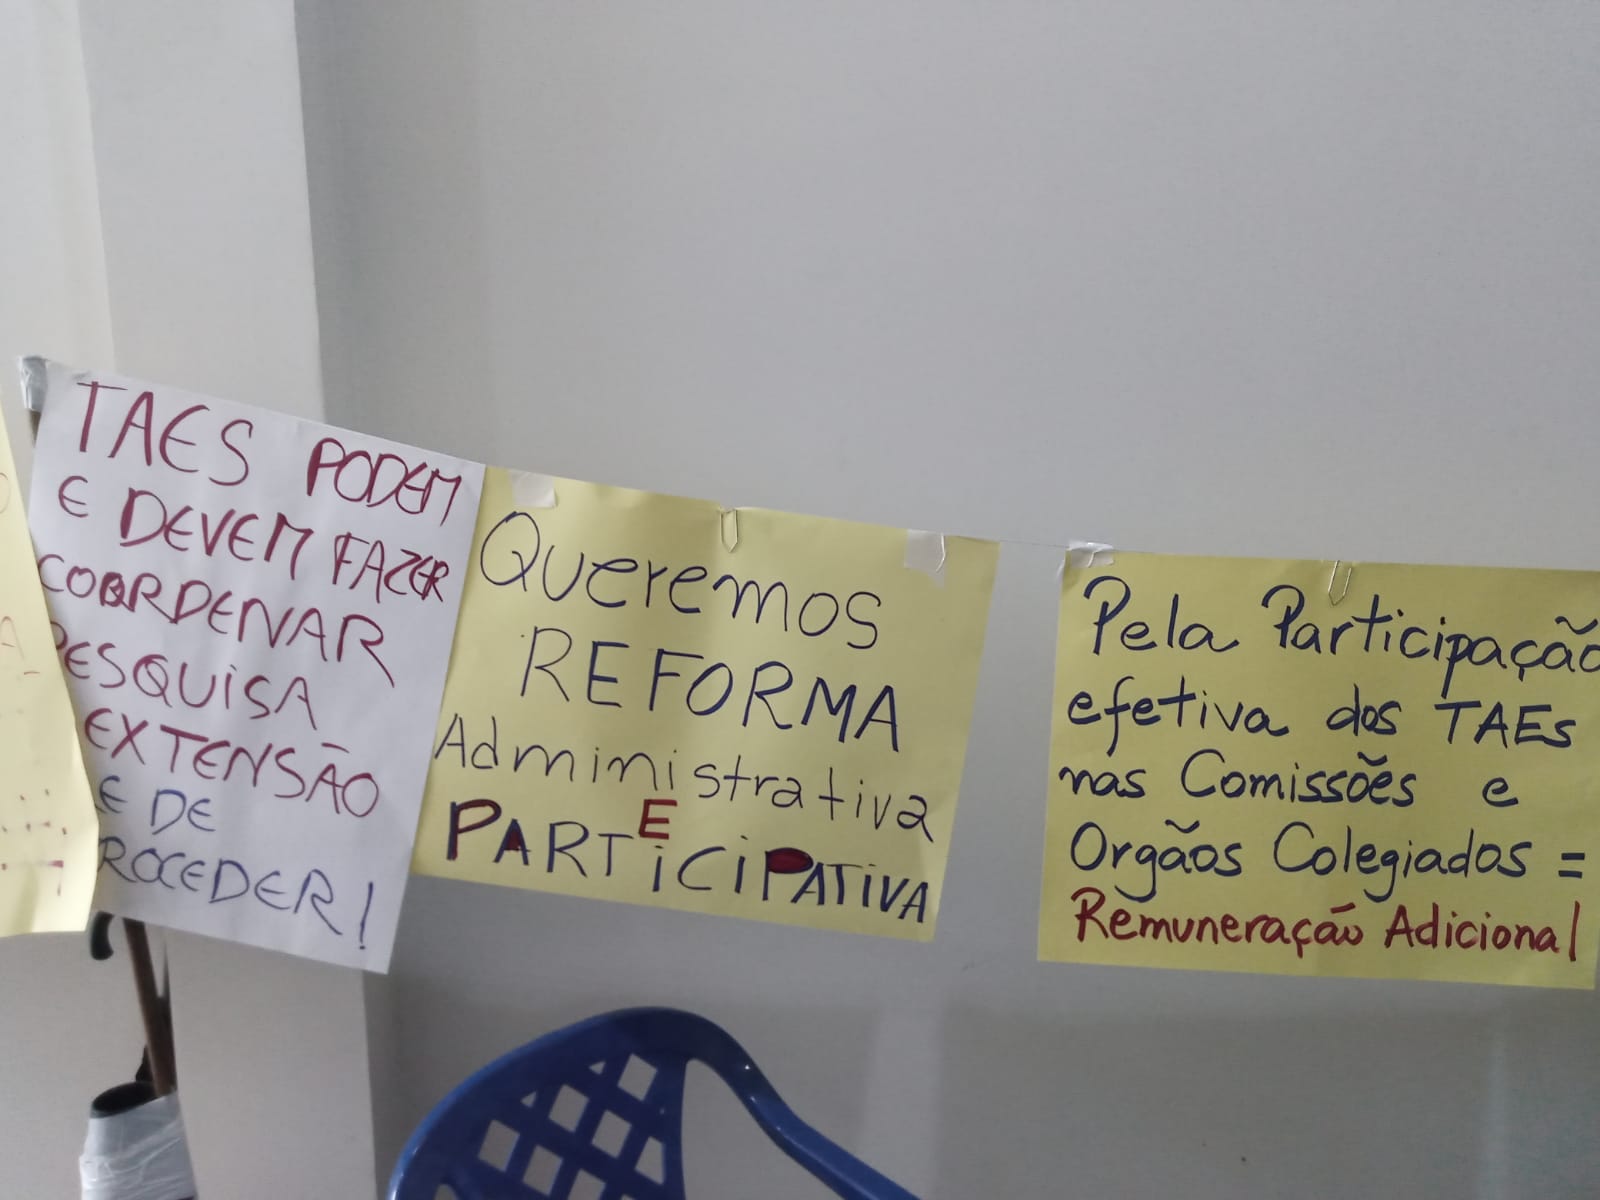 TAES PODEM
E DEVEM FAZER
COORDENAR
PESQUISA
EXTENSÃO
E DE
ROCEDER!
Queremos
REFORMA
Administrativa
E
PARTiCiPATiVA
Pela Participação
efetiva dos TAEs
nas Comissões e
Orgãos Colegiados =
Remuneração Adicional